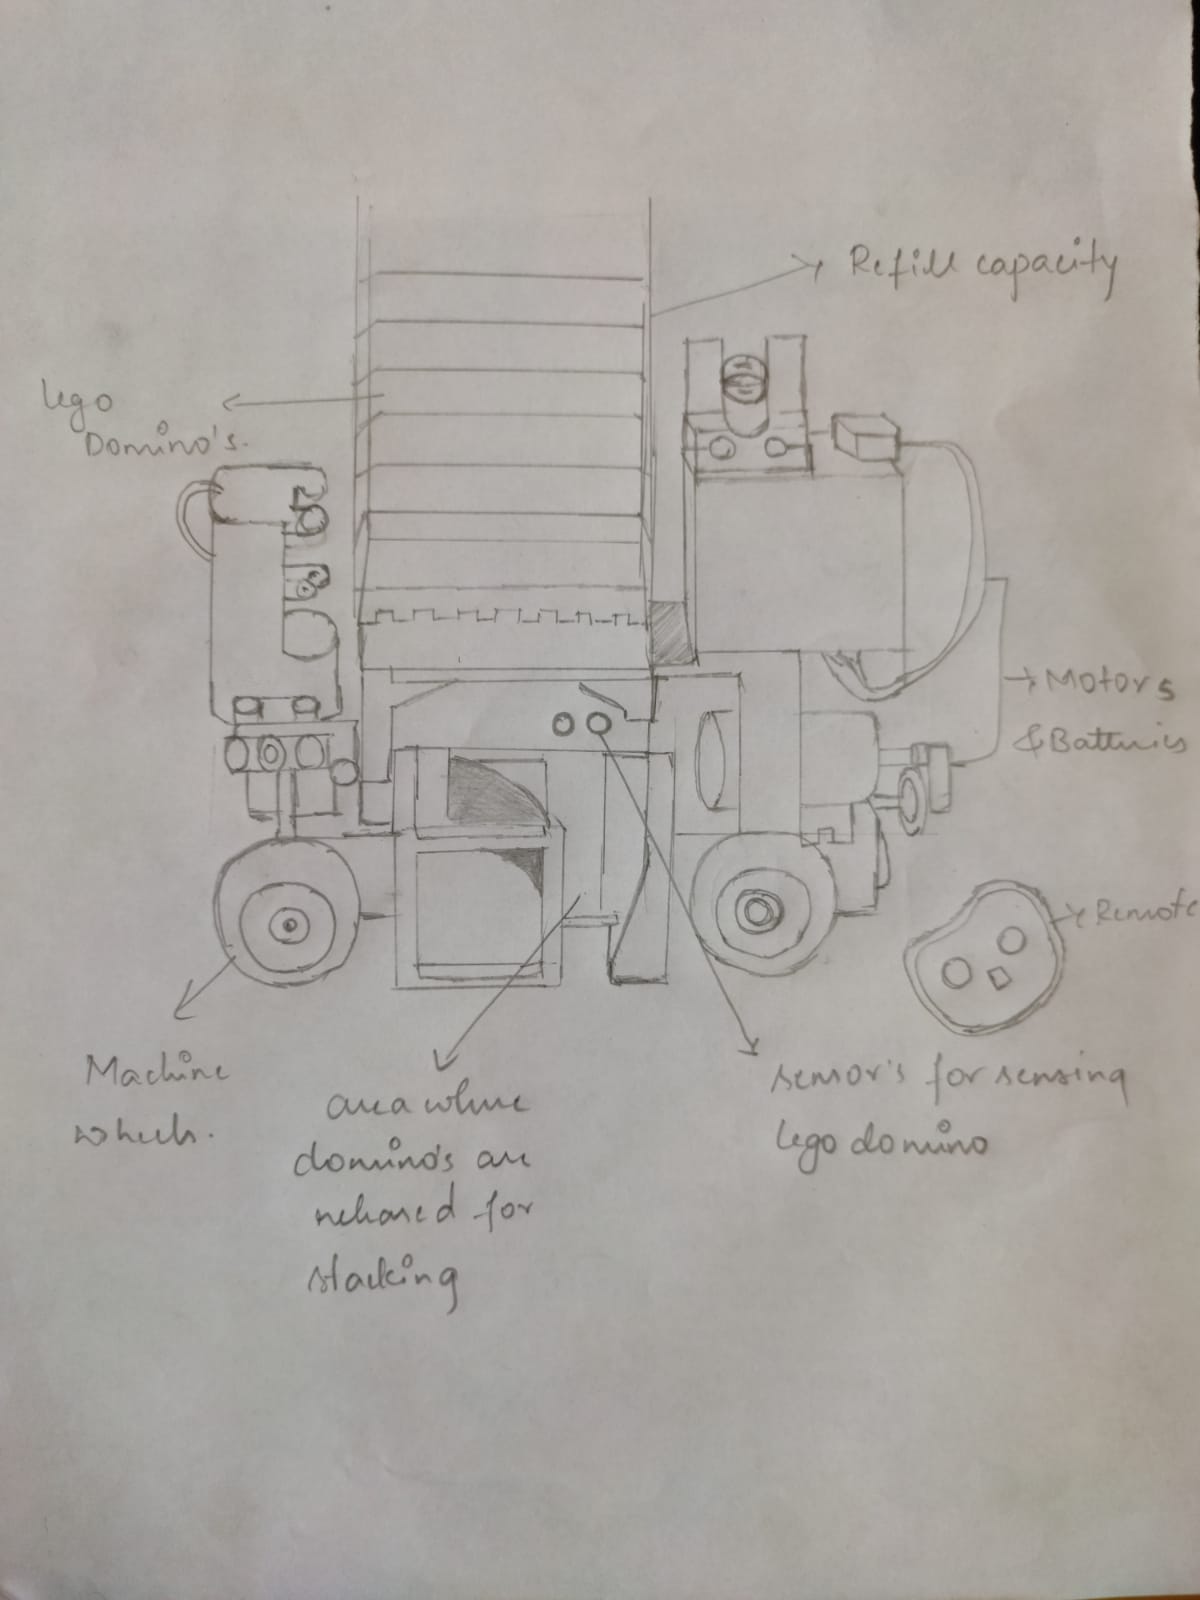 Refill capacity
Lego
Domino's.
Motors
& Batteries
Remote
Machine
wheels.
area where
domino's are
released for
stacking
sensor's for sensing
lego domino